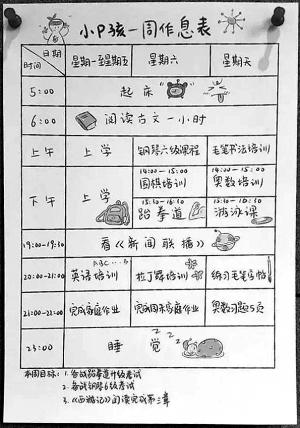 小P孩一周作息表
日期
时间
星期一至星期五 星期六 星期天
5:00 起床
6:00 阅读古文一小时
上午 上学 钢琴六级课程 毛笔书法培训
下午 上学 14:00-15:00 围棋培训 14:00-15:00 奥数培训
15:10-16:10 跆拳道 15:10-16:30 游泳课
19:00-19:30 看《新闻联播》
ABC...
20:00-21:00 英语培训 拉丁舞培训 练习毛笔字帖
21:00-22:00 完成家庭作业 完成周末家庭作业 奥数习题5页
23:00 睡觉 zzz
本周目标: 1. 备战跆拳道升级考试
2. 备战钢琴6级考试
3. 《西游记》阅读完成第三章